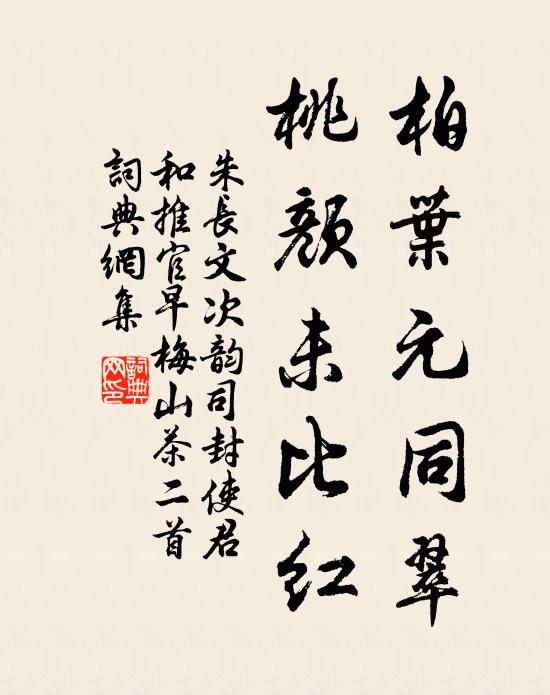 柏葉元同翠
桃顏未比紅
朱長文次韵司封使君
和推官早梅山茶二首
詞典網集
詞典网印